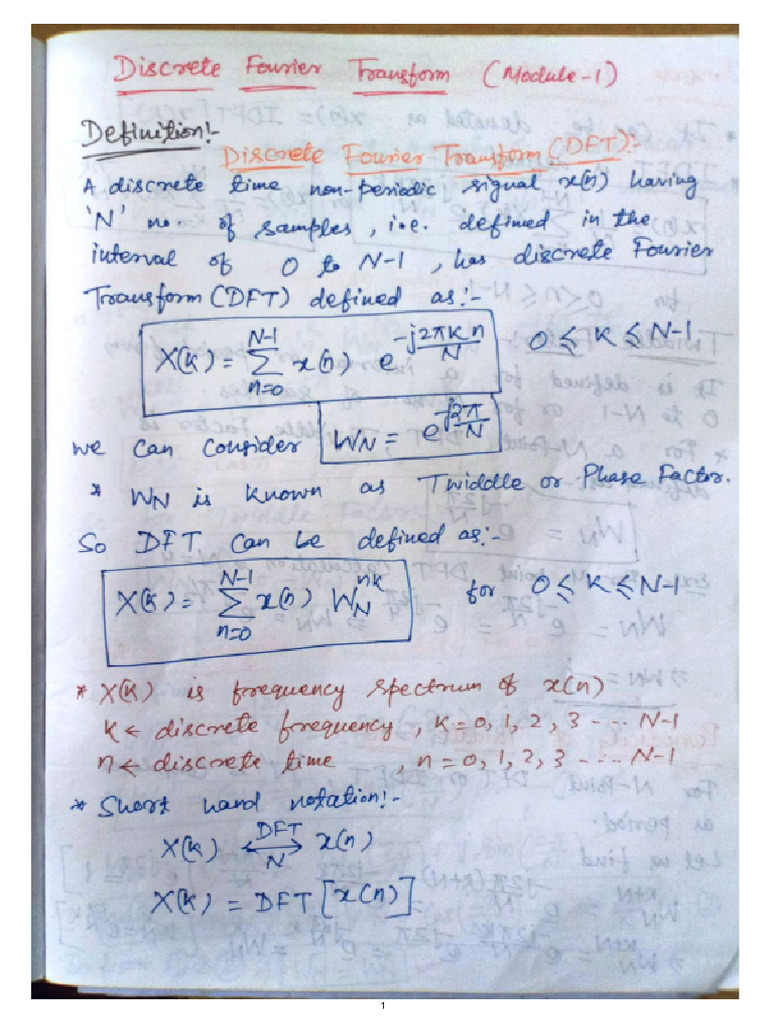 Discrete Fourier Transform (Module-1)
Definition:-
Discrete Fourier Transform (DFT):-
A discrete time non-periodic signal x(n) having
'N' no. of samples, i.e. defined in the
interval of 0 to N-1, has discrete Fourier
Transform (DFT) defined as:-
X(k) = ∑_{n=0}^{N-1} x(n) e^{-j2πkn/N} 0 ≤ k ≤ N-1
we can consider W_N = e^{-j2π/N}
* W_N is known as Twiddle or Phase Factor.
So DFT can be defined as:-
X(k) = ∑_{n=0}^{N-1} x(n) W_N^{nk} for 0 ≤ k ≤ N-1
* X(k) is frequency spectrum of x(n)
k ← discrete frequency, k = 0, 1, 2, 3 --- N-1
n ← discrete time, n = 0, 1, 2, 3 --- N-1
* Short hand notation:-
X(k) ⟷^{DFT}_{N} x(n)
X(k) = DFT [x(n)]
1